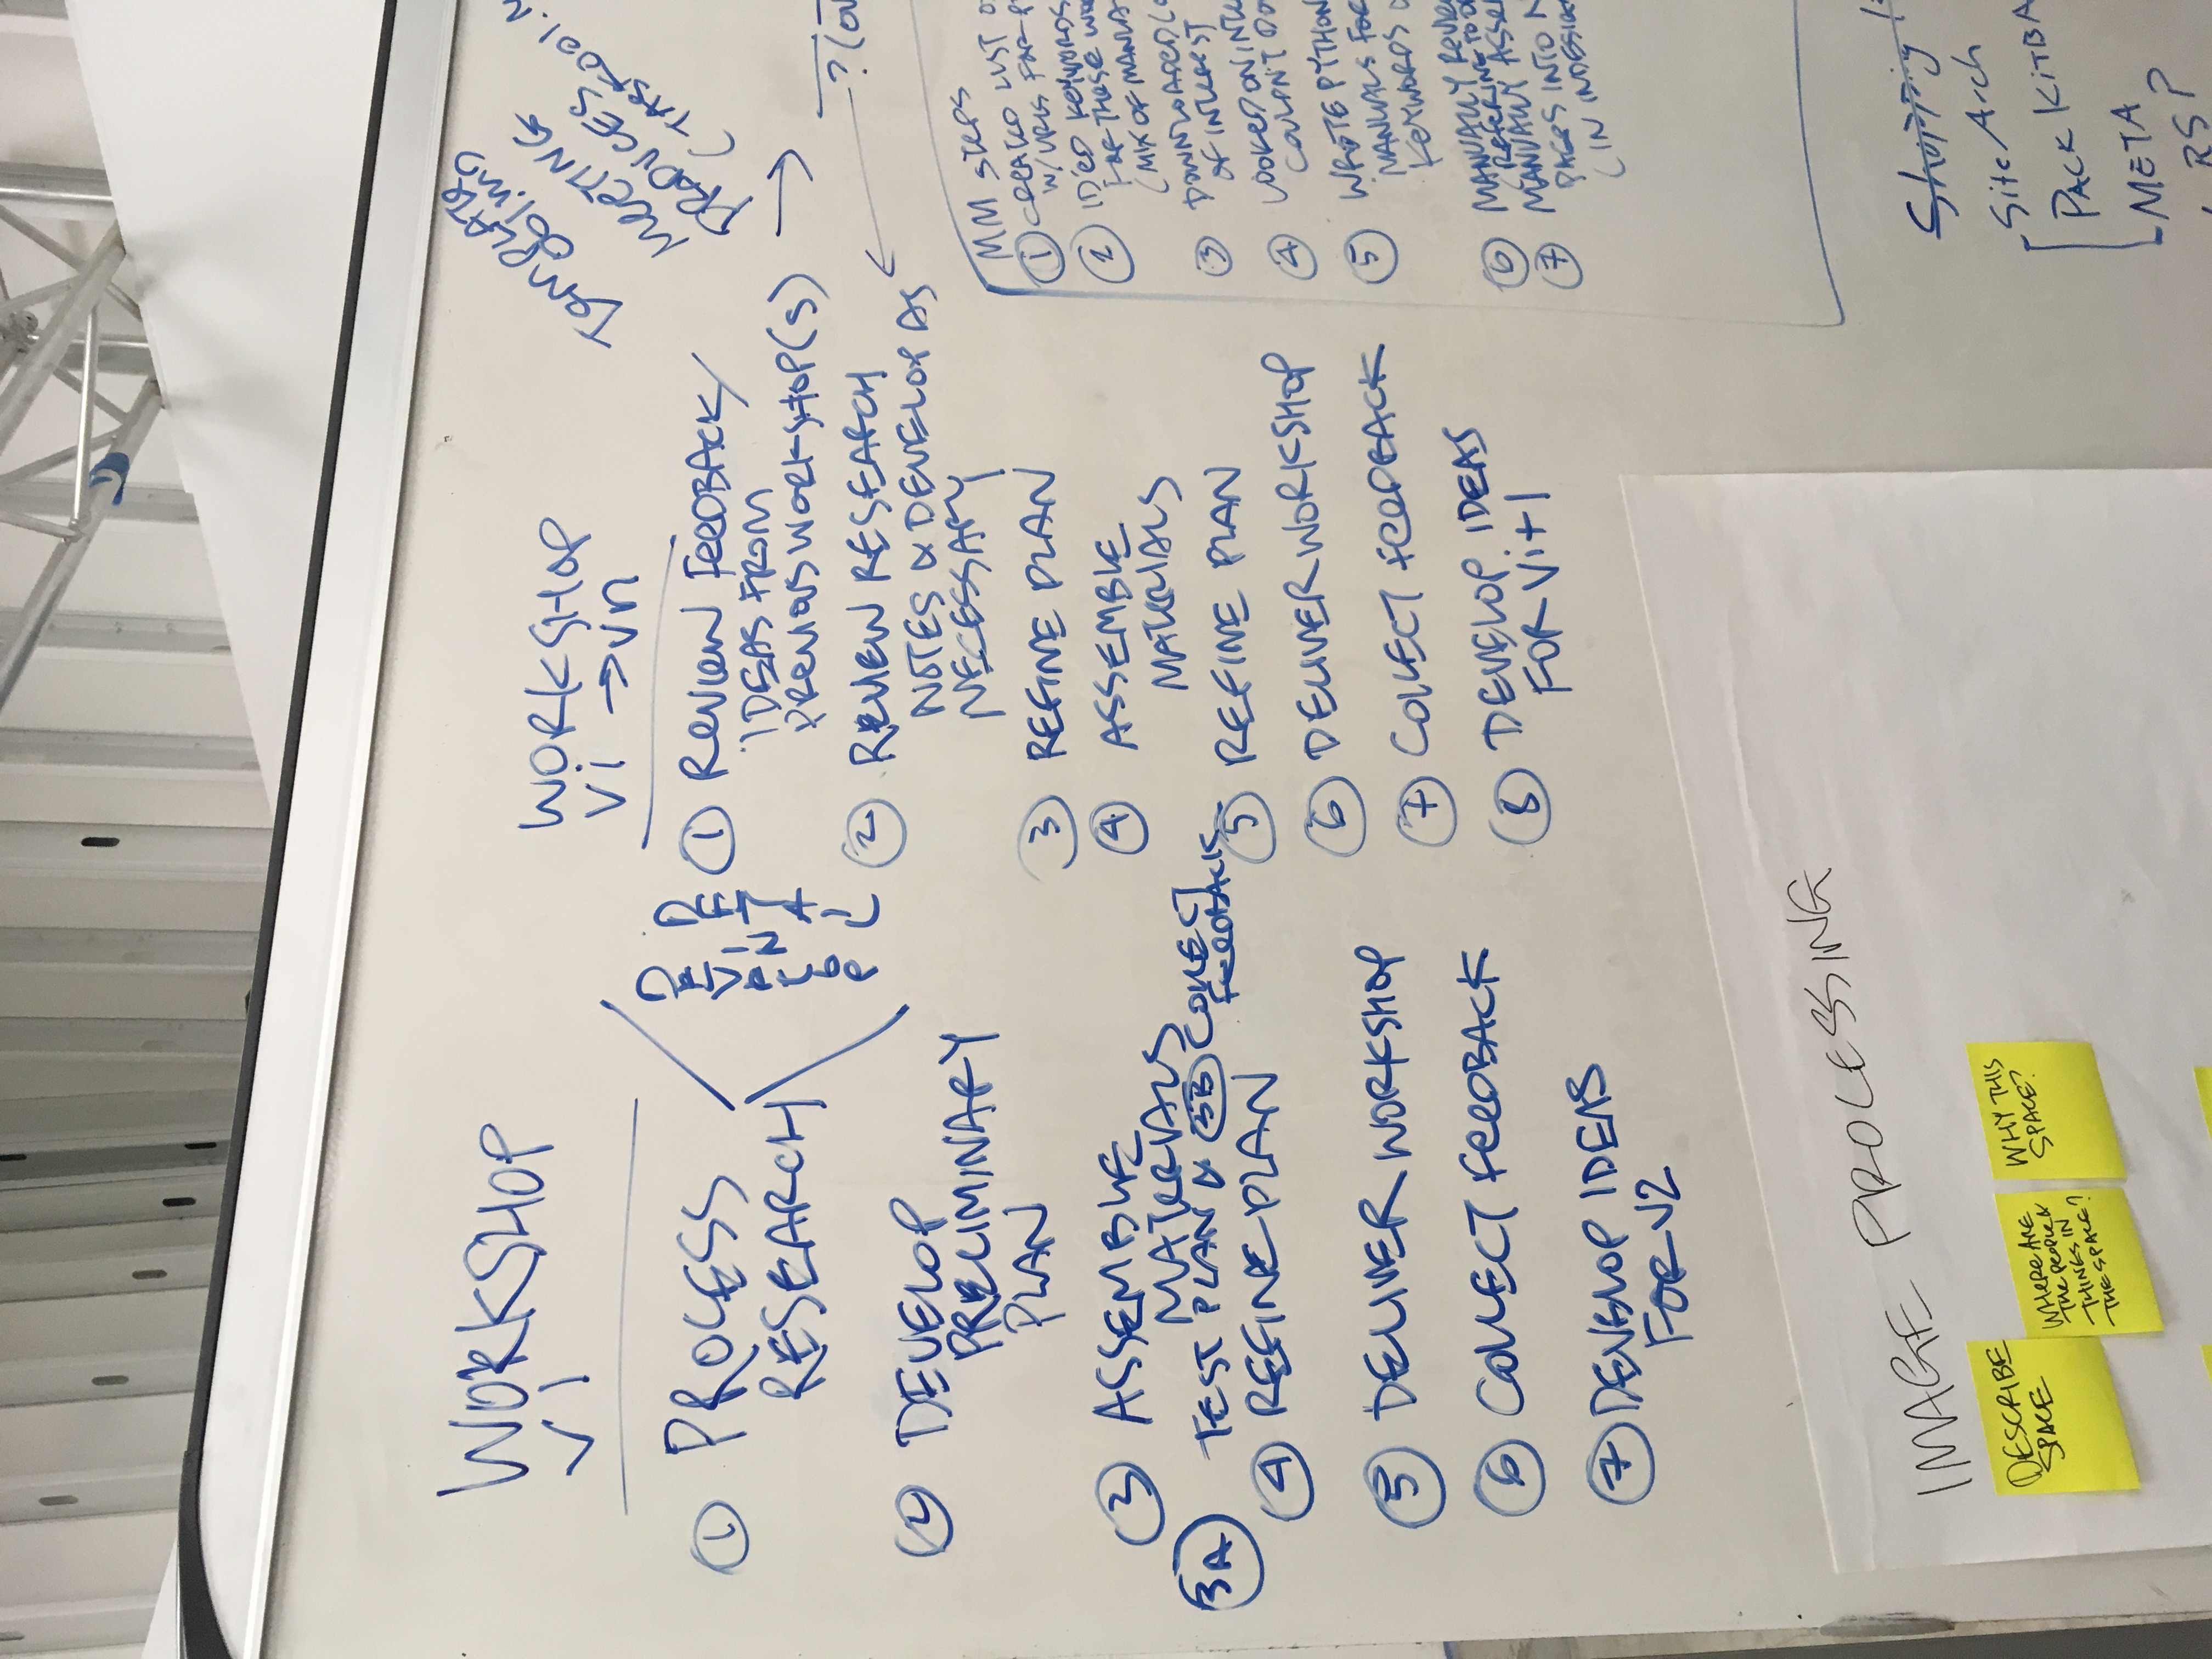 WORKSHOP
V1
① PROCESS
RESEARCH
② DEVELOP
PRELIMINARY
PLAN
③ ASSEMBLE
MATERIALS
3A TEST PLAN & 3B COLLECT
FEEDBACK
④ REFINE PLAN
⑤ DELIVER WORKSHOP
⑥ COLLECT FEEDBACK
⑦ DEVELOP IDEAS
FOR V2
DEVELOP
IN
DETAIL
WORKSHOP
Vi → Vn
① REVIEW FEEDBACK/
IDEAS FROM
PREVIOUS WORKSHOP(S) →
② REVIEW RESEARCH
NOTES & DEVELOP AS
NECESSARY
③ REFINE PLAN
④ ASSEMBLE
MATERIALS
⑤ REFINE PLAN
⑥ DELIVER WORKSHOP
⑦ COLLECT FEEDBACK
⑧ DEVELOP IDEAS
FOR Vi+1
TEMPLATE
001.MD
MEETING
PRODUCES
(TASK001.M
? (OU
MM STEPS
① CREATED LIST
W/URLS FOR
② ID'ED KEYWORDS
FOR THESE
(MIX OF
③ DOWNLOADED
OF INTEREST
④ LOOKED ON
COULDN'T
⑤ WROTE PYTHON
MANUALS FOR
KEYWORDS
⑥ MANUALLY
(REFERING TO
⑦ MANUALLY
PAGES INTO
(IN
Shopping
Site Arch
PACK KITBA
META
RSP
IMAGE PROCESSING
DESCRIBE
SPACE
WHERE ARE
THE PEOPLE &
THINGS IN
THE SPACE?
WHY THIS
SPACE?